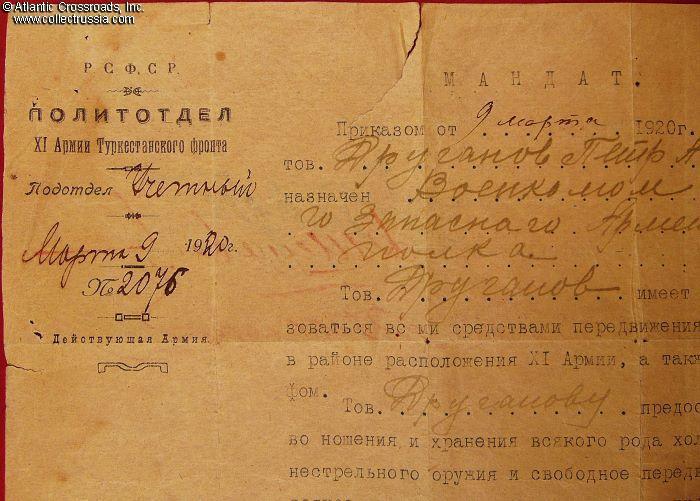 © Atlantic Crossroads, Inc.
www.collectrussia.com
Р С Ф С Р.
ПОЛИТОТДЕЛ
XI Армии Туркестанского фронта
Подотдел Учетный
Марта 9 1920 г.
№ 2076
Действующая Армия.
МАНДАТ.
Приказом от 9 марта 1920г.
тов. Друганов Петр А
назначен Военкомом
го Запасного Арме
полка
Тов. Друганов имеет
зоваться все ми средствами передвижения
в районе расположения XI Армии, а такж
фом.
Тов. Друганову предос
во ношения и хранения всякого рода хол
нестрельного оружия и свободное перед